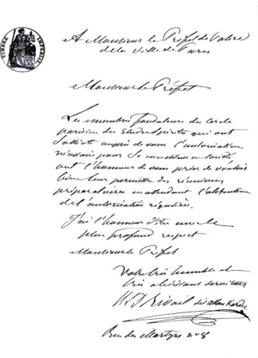 A Monsieur le Préfet de Police
de la Ville de Paris
Monsieur le Préfet
Les membres fondateurs du Cercle
parisien des Etudes spirites qui ont
sollicité auprès de vous l'autorisation
nécessaire pour se constituer en Société,
ont l'honneur de vous prier de vouloir
bien leur permettre des réunions
préparatoires en attendant l'obtention
de l'autorisation régulière.
J'ai l'honneur d'être avec le
plus profond respect
Monsieur le Préfet
Votre très humble et
très obéissant serviteur
H L D Rivail dit Allan Kardec
Rue des Martyrs n° 8